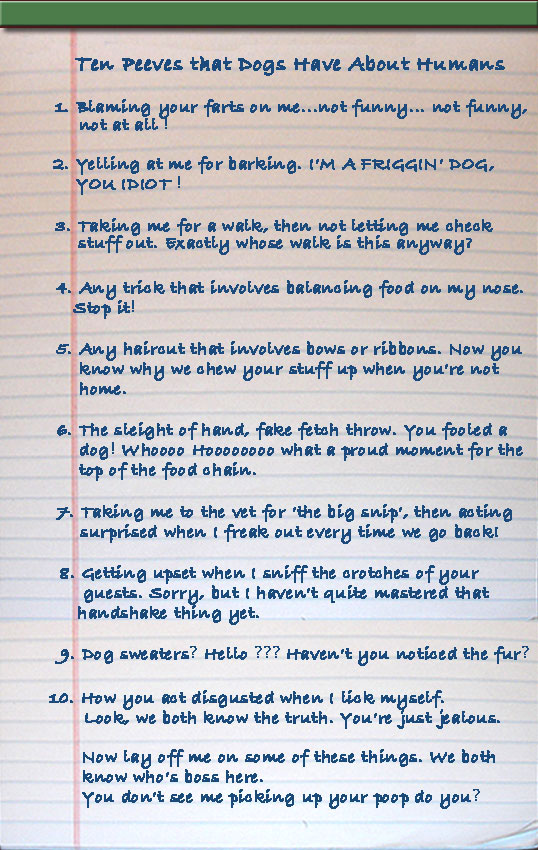 Ten Peeves that Dogs Have About Humans
1. Blaming your farts on me...not funny... not funny,
not at all !
2. Yelling at me for barking. I'M A FRIGGIN' DOG,
YOU IDIOT !
3. Taking me for a walk, then not letting me check
stuff out. Exactly whose walk is this anyway?
4. Any trick that involves balancing food on my nose.
Stop it!
5. Any haircut that involves bows or ribbons. Now you
know why we chew your stuff up when you're not
home.
6. The sleight of hand, fake fetch throw. You fooled a
dog! Whoooo Hoooooooo what a proud moment for the
top of the food chain.
7. Taking me to the vet for 'the big snip', then acting
surprised when I freak out every time we go back!
8. Getting upset when I sniff the crotches of your
guests. Sorry, but I haven't quite mastered that
handshake thing yet.
9. Dog sweaters? Hello ??? Haven't you noticed the fur?
10. How you act disgusted when I lick myself.
Look, we both know the truth. You're just jealous.
Now lay off me on some of these things. We both
know who's boss here.
You don't see me picking up your poop do you?